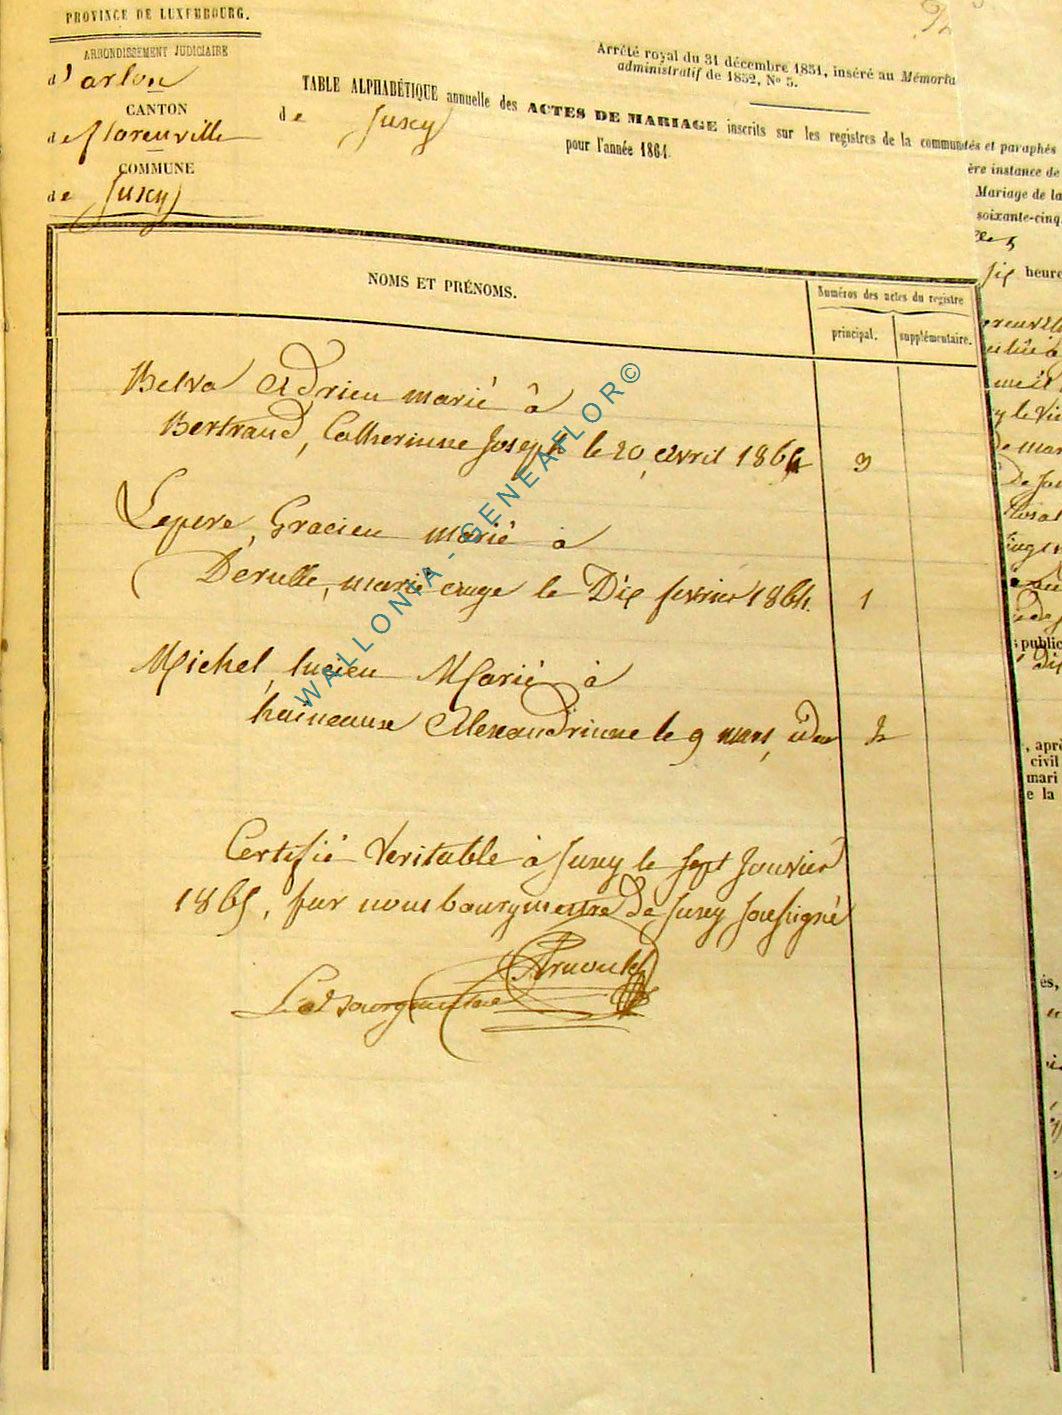 PROVINCE DE LUXEMBOURG.
ARRONDISSEMENT JUDICIAIRE
d'arlon
CANTON
de florenville
COMMUNE
de Suxy
Arrêté royal du 31 décembre 1851, inséré au Mémorial
administratif de 1852, No 5.
TABLE ALPHABÉTIQUE annuelle des ACTES DE MARIAGE inscrits sur les registres de la commune
de Suxy
pour l'année 1864.
NOMS ET PRÉNOMS.
Numéros des actes du registre
principal.
supplémentaire.
Belva Adrien marié à
Bertrand, Catherinne Joseph le 20 avril 1864 3
Lepere, Gracien marié à
Derulle, marie ange le Dix fevrier 1864. 1
Michel, lucien Marié à
haineaux Alexandrinne le 9 mars, idem 2
Certifié Veritable à Suxy le Sept Janvier
1865, par nous bourgmestre De Suxy Soussigné
Le Bourgmestre
Arnould
tés et paraphés
ère instance de
Mariage de la
soixante-cinq
heure
public
, aprè
civil
mari
e la
és,
WALLONIA - GENEAFLOR©